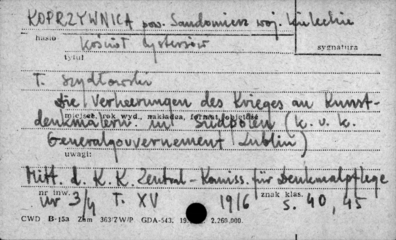 KOPRZYWNICA pow. Sandomierz woj. Kieleckie
hasło
Kościół Cystersów
sygnatura
tytuł
T. Szydłowski
Die Verheerungen des Krieges an Kunst-
miejsce, rok wyd., nakładca, format, objętość
denkmälern in Südpolen (K. u. K.
Generalgouvernement Lublin)
uwagi:
Mitt. d. K. K. Zentral-Komiss. für Denkmalpflege
nr inw. znak klas.
Nr 3/4 T. XV 1916 s. 40, 45
CWD B-15a Zam 363 ZW/P. GDA-543, 2.260.000.